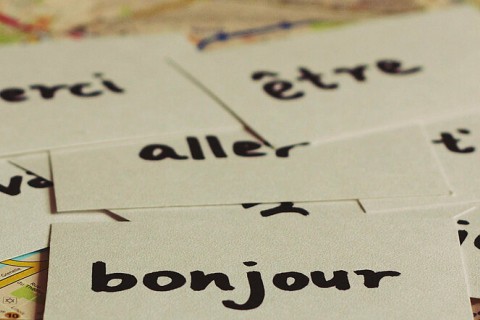 erci
être
aller
va
t'
bonjour